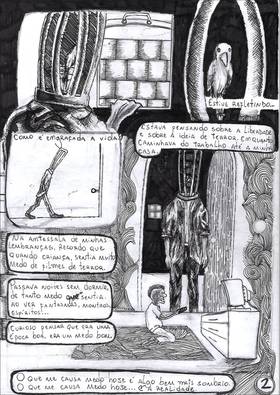 Estive refletindo...
Como é engraçada a vida!
Estava pensando sobre a liberdade
e sobre a ideia de terror, enquanto
caminhava do trabalho até a minha
casa.
Na antessala de minhas
lembranças, recordo que
quando criança, sentia muito
medo de filmes de terror.
Passava noites sem dormir,
de tanto medo que sentia.
Ao ver fantasmas, monstros,
espíritos...
Curioso pensar que era uma
época boa, era um medo bom.
O que me causa medo hoje é algo bem mais sombrio.
O que me causa medo hoje... é a realidade
2